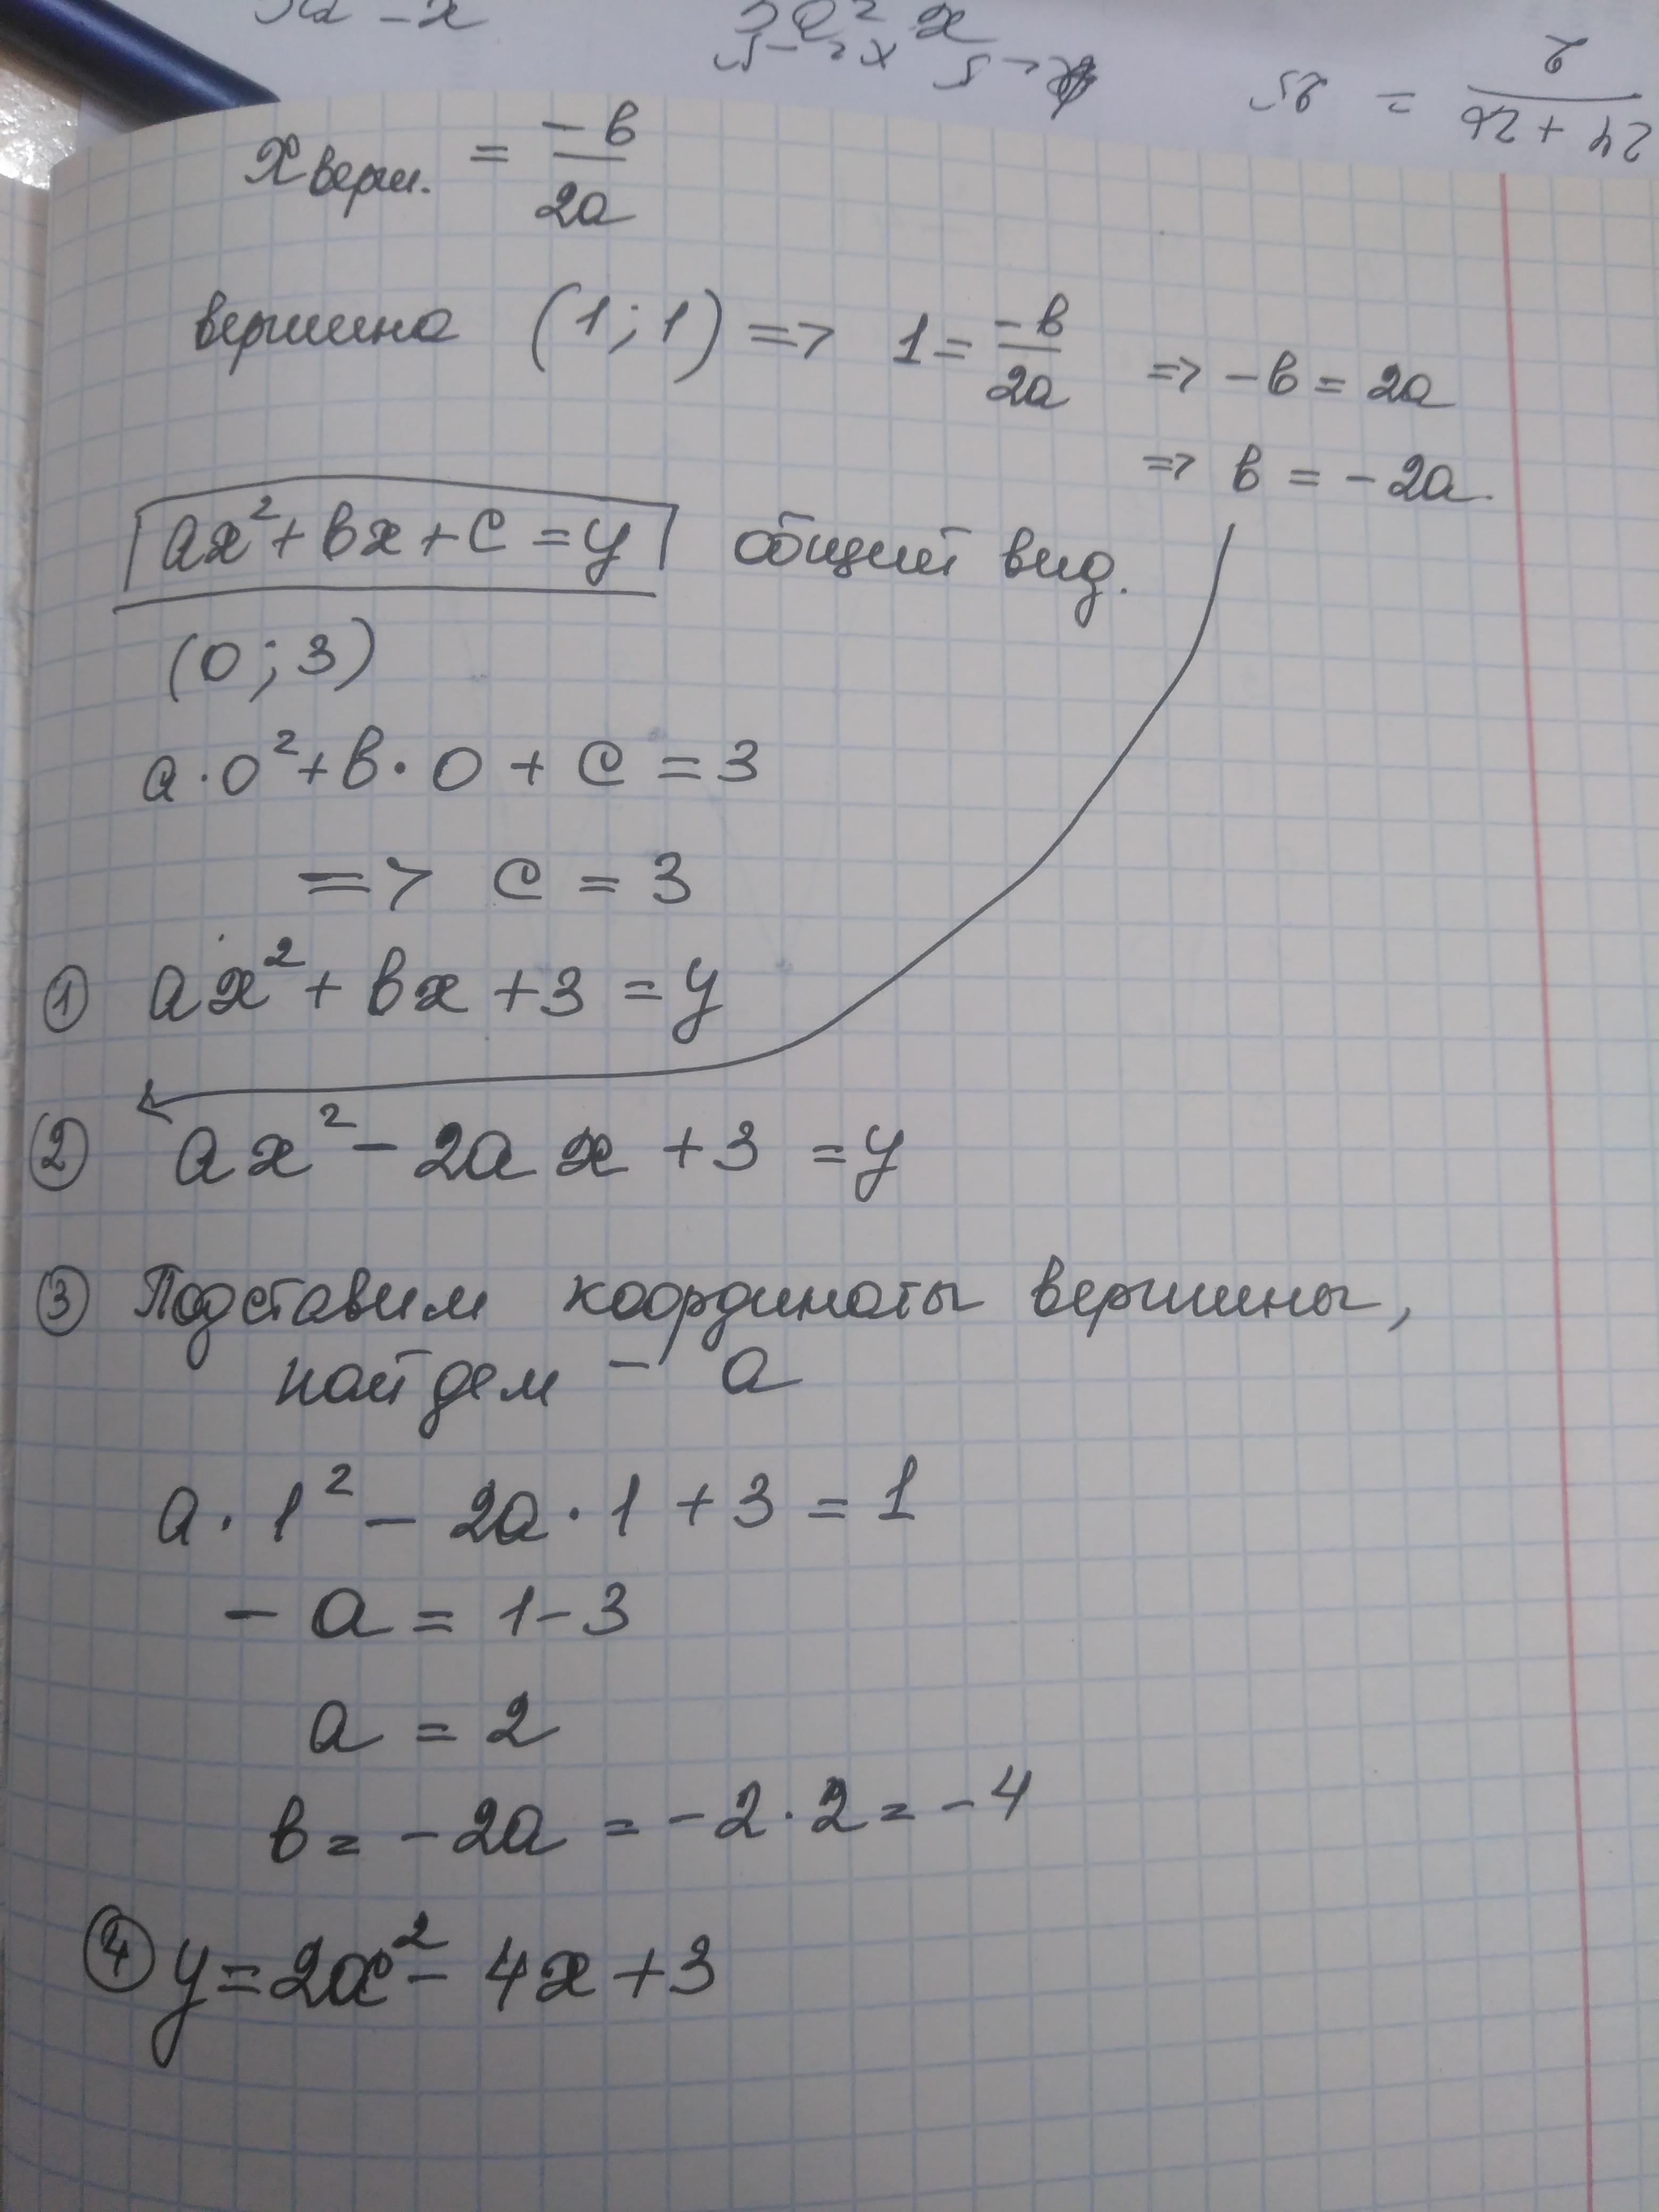 x верш. = -в/2a
вершина (1; 1) => 1 = -в/2a => -в = 2a
=> в = -2a.
ax² + вx + c = y общий вид.
(0; 3)
a·0² + в·0 + c = 3
=> c = 3
① ax² + вx + 3 = y
② ax² - 2ax + 3 = y
③ Подставим координаты вершины,
найдем - a
a·1² - 2a·1 + 3 = 1
-a = 1-3
a = 2
в = -2a = -2·2 = -4
④ y = 2x² - 4x + 3